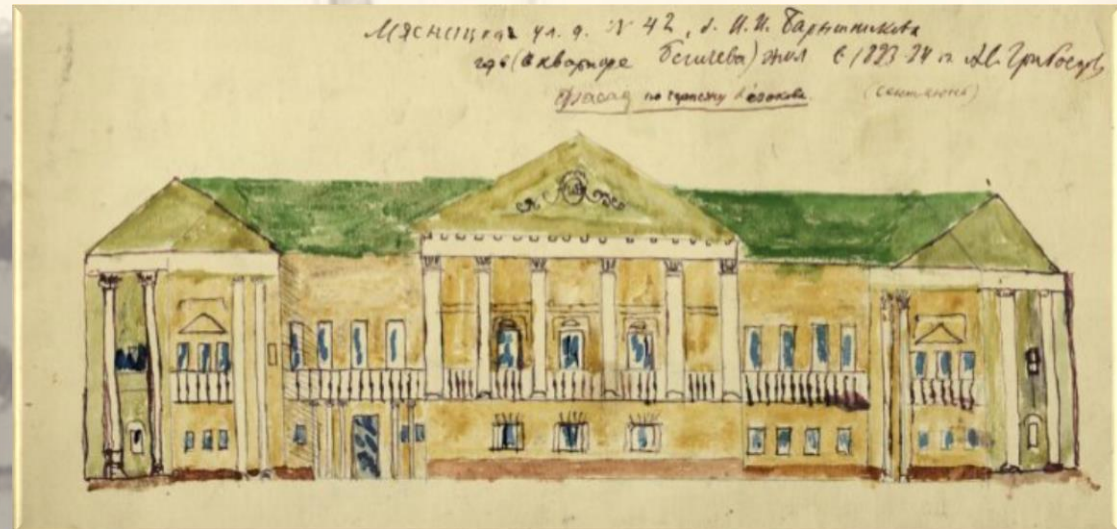 Мясницкая ул. д. № 42, б. И.И. Барышникова
где (в квартире Бегичева) жил в 1823-24 гг. А.С. Грибоедов
Фасад по чертежу Казакова. (сент.-июнь)